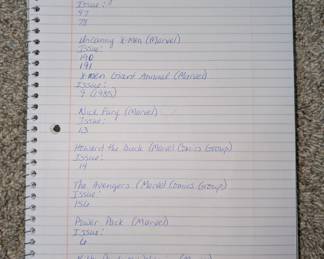 Issue:
97
78
Uncanny X-Men (Marvel)
Issue:
190
191
X-Men Giant Annual (Marvel)
Issue:
9 (1985)
Nick Fury (Marvel)
Issue:
13
Howard the Duck (Marvel Comics Group)
Issue:
14
The Avengers (Marvel Comics Group)
Issue:
156
Power Pack (Marvel)
Issue:
6